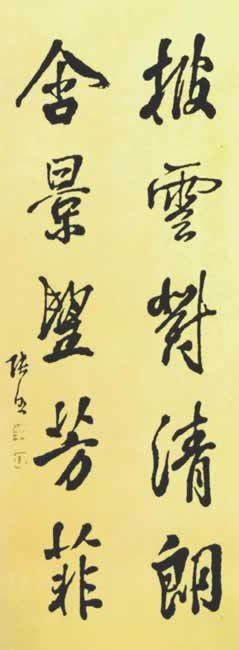 披雲對清朗
含景朢芳菲